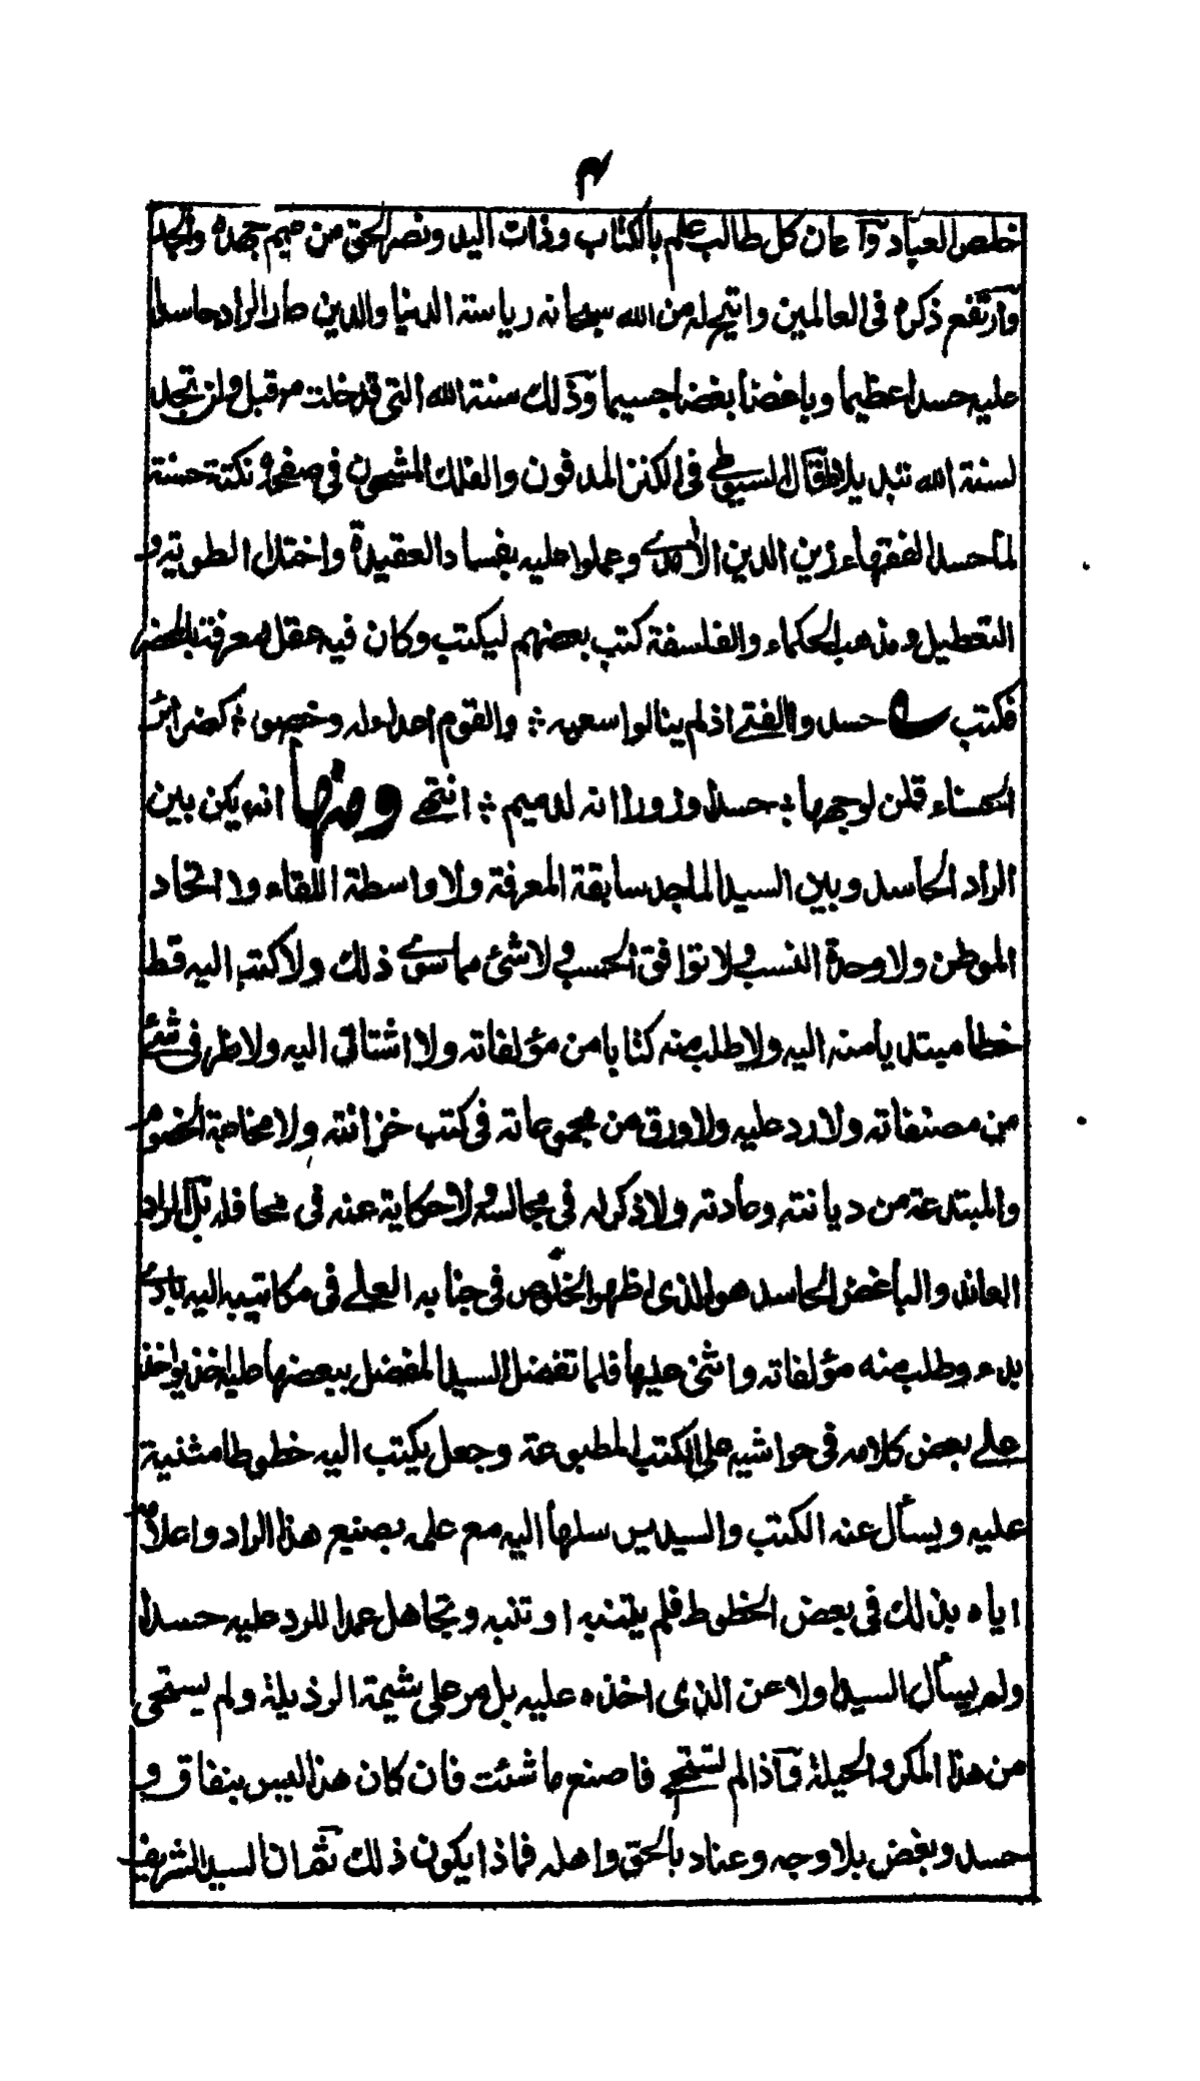 ٣
خلص العباد وآعان كل طالب علم بالكتاب وذات اليد ونصر الحق من صميم جهده والجد
وآرتفع ذكره في العالمين واتيح له من الله سبحانه رياسته الدنيا والدين صار الراد حاسدا
عليه حسدا عظيما وباغضا بغضا جسيما وذلك سنة الله التي قد خلت من قبل ولن تجد
لسنة الله تبديلا قال السيوطي في الكنز المدفون والفلك المشحون في صفحة نكتة حسنة
لما حسد الفقهاء زين الدين الآمدي وعملوا عليه بفساد العقيدة واختلال الطوية و
التعطيل ومذهب الحكماء والفلسفة كتب بعضهم ليكتب وكان فيه عقل ومعرفة بالمحضر
فكتب حسدوا الفتى اذ لم ينالوا سعيه ؛ والقوم اعداء له وخصوم ؛ كضرائر
الحسناء قلن لوجهها ؛ حسدا وزورا انه لدميم ؛ انتهى ومنها انه يكن بين
الراد الحاسد وبين السيد الماجد سابقة المعرفة ولا واسطة اللقاء ولا اتحاد
الموطن ولا وحدة النسب ولا توافق الحسب ولا شئ مما سوى ذلك ولا كتب اليه قط
خطا مبتديا منه اليه ولا طلب منه كتابا من مؤلفاته ولا اشتاق اليه ولا نظر في شئ
من مصنفاته ولا رد عليه ولا ورق من مجموعاته في كتب خزانته ولا مخاصمة الخصوم
والمبتدعة من ديانته وعادته ولا ذكر له في مجالسه ولا حكاية عنه في محافله بل الراد
العاند والباغض الحاسد هو الذي اظهر الخلوص في جنابه العلى في مكاتيبه اليه بادى
بدء وطلب منه مؤلفاته واثنى عليها فلما تفضل السيد المفضل ببعضها عليه اخذ يواخذ
على بعض كلامه في حواشيه على الكتب المطبوعة وجعل يكتب اليه خطوطا مثنية
عليه ويسأل عنه الكتب والسيد يرسلها اليه مع علمه بصنيع هذا الراد واعلام
اياه بذلك في بعض الخطوط فلم يتنبه او تنبه وتجاهل عمدا للرد عليه حسدا
ولم يسأل السيد اولا عن الذي اخذه عليه بل مر على شيمته الرذيلة ولم يستحى
من هذا المكر والحيلة وآذا لم تستحى فاصنع ما شئت فان كان هذا ليس بنفاق و
حسد وبغض بلا وجه وعناد بالحق واهله فماذا يكون ذلك ثم ان السيد الشريف